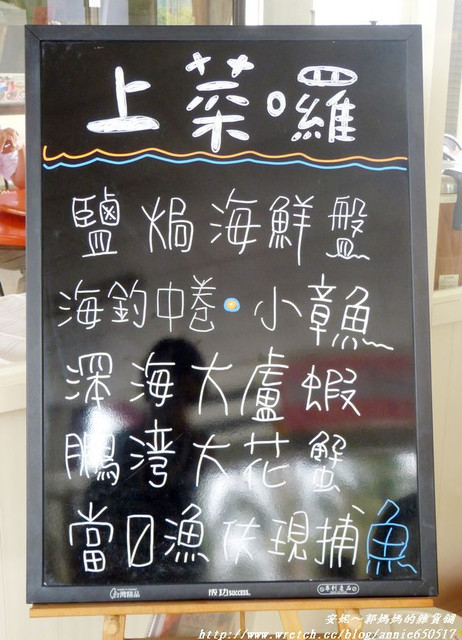 上菜囉
鹽焗海鮮盤
海釣中卷·小章魚
深海大盧蝦
鵬灣大花蟹
當日漁伕現捕魚
台灣精品
成功 SUCCESS.
專利產品
安妮~郭媽媽的雜貨舖
http://www.wretch.cc/blog/annie650517